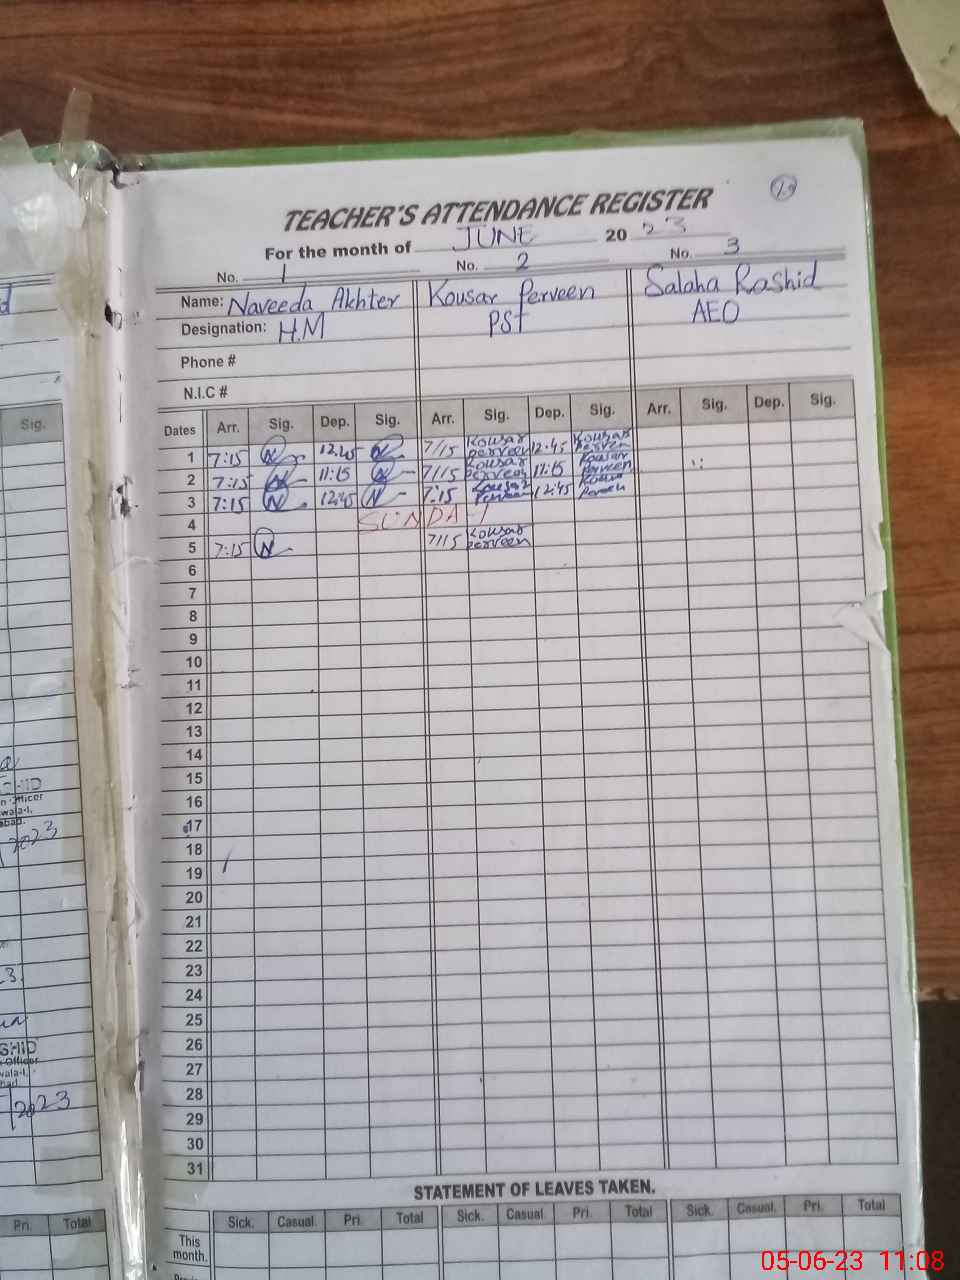 TEACHER'S ATTENDANCE REGISTER
For the month of JUNE 2023
No. 1 No. 2 No. 3
Name: Naveeda Akhter Kousar Perveen Salaha Rashid
Designation: H.M PST AEO
Phone #
N.I.C #
Dates Arr. Sig. Dep. Sig. Arr. Sig. Dep. Sig. Arr. Sig. Dep. Sig.
1 7:15 N 12:45 N 7/15 Kousar Perveen 12:45 Kousar Perveen
2 7:15 N 11:15 N 7/15 Kousar Perveen 11:15 Kousar Perveen
3 7:15 N 12:45 N 7:15 Kousar Perveen 12:45 Kousar Perveen
4 SUNDAY
5 7:15 N 7/15 Kousar Perveen
6
7
8
9
10
11
12
13
14
15
16
17
18
19
20
21
22
23
24
25
26
27
28
29
30
31
STATEMENT OF LEAVES TAKEN.
Sick. Casual. Pri. Total Sick. Casual. Pri. Total Sick. Casual. Pri. Total
This
month.
Sig.
2023
2023
Pri. Total
05-06-23 11:08